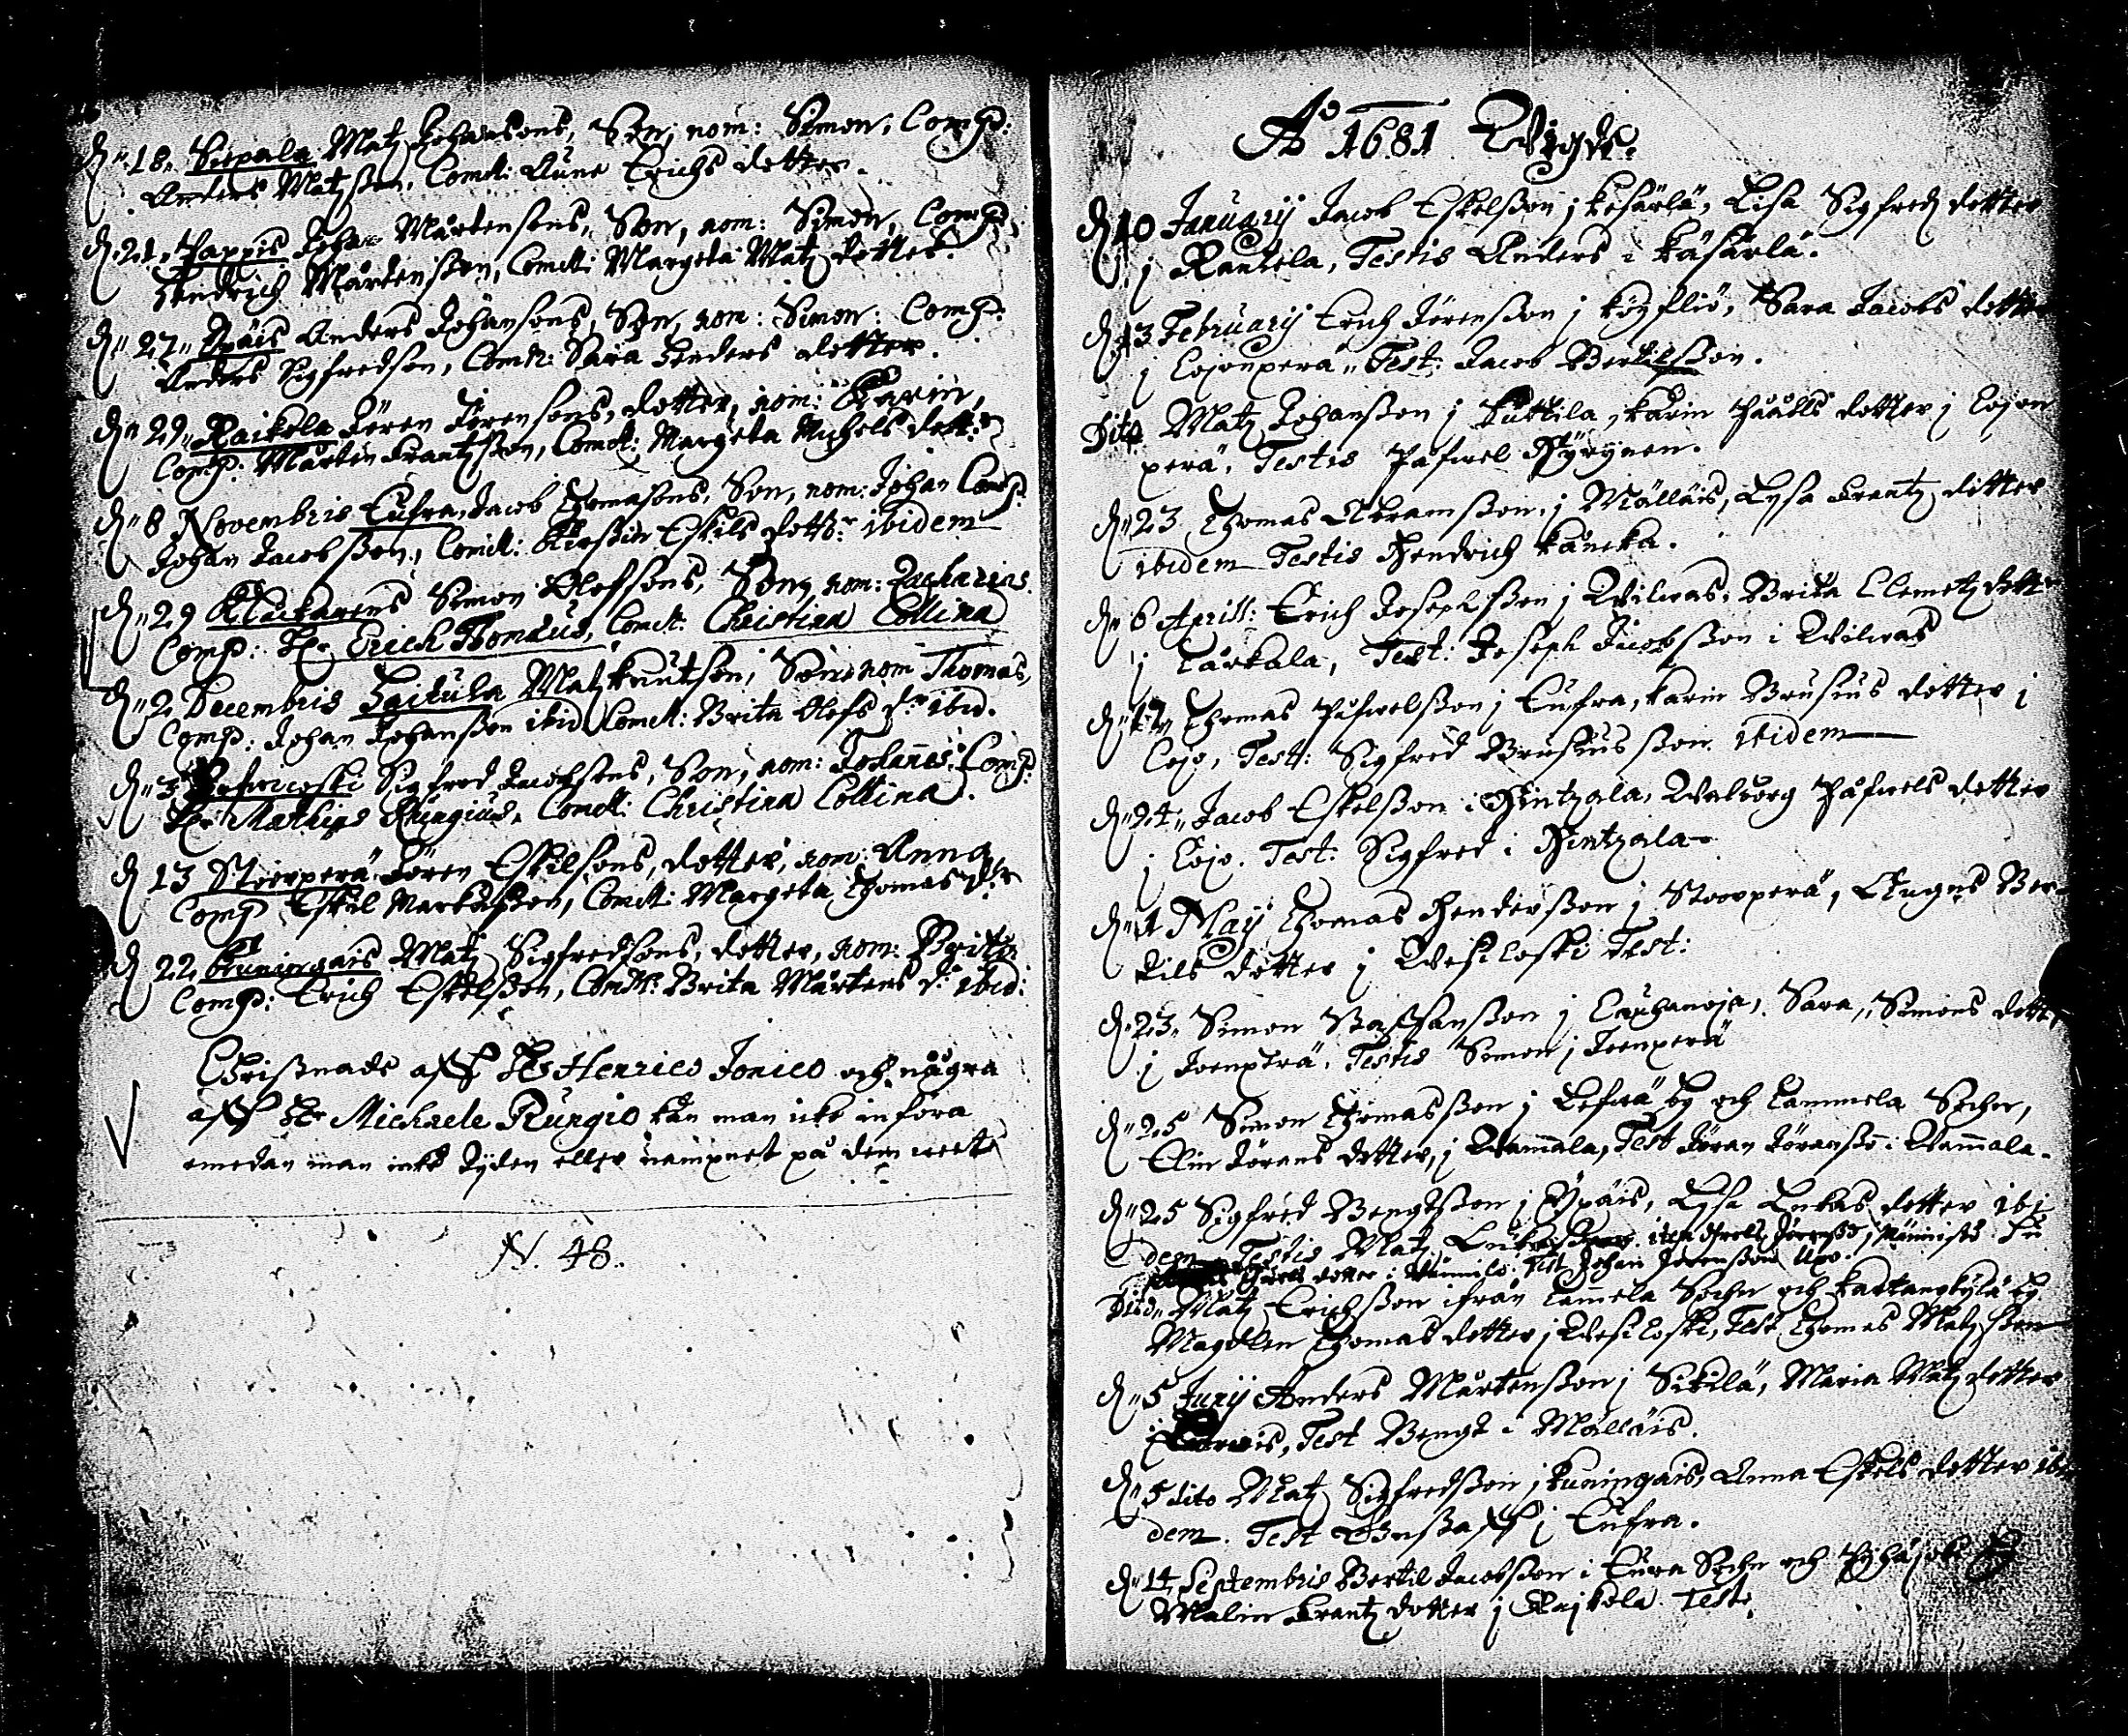 d. 18. Seppala Matz Johansons, Son, nom: Simon, Comp:
Anders Matzson, Comt: Aune Erichs dotter.
d. 21. Pappis Johan Mårtensons, Son, nom: Simon, Comp:
Hindrich Mårtensson, Comt: Margeta Matz dotter.
d. 27. Ypäis Anders Johansons, Son, nom: Simon: Comp:
Anders Sigfredson, Comt: Sara Henders dotter.
d. 29. Raikola Jören Jörensons, dotter, nom: Karin,
Comp: Mårten Frantzson, Comt: Margeta Michels dott:
d. 8 Novembris Eufra, Jacob Thomasons, Son, nom: Johan Comp:
Johan Jacobsson, Comt: Kirstin Eskils dott: ibidem
d. 29 Kluckarens Simon Olofsons, Son, nom: Zacharias.
Comp: Hr Erich Thonæus, Comt: Christina Collina
d. 2 Decembris Haikula Matz Knutson, Son nom Thomas,
Comp: Johan Johansson ibid Comt: Brita Olofs d. ibid.
d. 3 Sigfred Jacobsons, Son, nom: Johannes. Comp:
Hr Mathias Rungius, Comt: Christina Collina.
d 13 Stoorperä Jören Eskilsons, dotter, nom: Anna
Comp Eskil Markusson, Comt: Margeta Thomas dr
d 22 Kuningais Matz Sigfredsons, dotter, nom: Brita
Comp: Erich Eskelsson, Comt: Brita Mårtens d. ibid:
Christnade aff Hr Henrico Jonico och några
aff Hr Michaele Rungio kan man icke införa
emedan man icke tyden eller nampnet på dem weet
N. 48.
Ao 1681 Wigde.
d 10 Januarij Jacob Eskelsson j Kesärlä, Lisa Sigfredz dotter
j Rankela, Testis Anders i Käsärlä.
d 13 Februarij Erich Jörensson j Köyliö, Sara Jacobs dotter
j Lojonperä, Test: Jacob Bertilsson.
Dito Matz Johansson j Kuttila, Karin Påålls dotter j Lojon
perä, Testis Påfwel Pyrynen.
d. 23 Thomas Abramsson j Mälläis, Lysa Frantz dotter
ibidem Testis Hendrich Kancka.
d. 6 Aprill: Erich Josephsson j Wilwas, Brita Clemetz dott
j Karkala, Test: Joseph Jacobsson i Wilwas
d. 17. Thomas Påfwelsson j Eufra, Karin Brusius dotter j
Lojo, Test: Sigfred Brusiusson ibidem
d. 24. Jacob Eskelsson i Hintzala, Walborg Påfwels dotter
j Lojo. Test: Sigfred i Hintzala
d. 1 Maij Thomas Hendersson j Stoorperä, Angns Ber-
tils dotter j Wesiloski Test:
d. 23. Simon Staffansson j Lauhanoja, Sara, Simons dotter
j Joenperä, Testis Simon j Joenperä
d. 25 Simon Thomasson j by och Lammela Sochn,
Elin Jörans dotter, j Wammala, Test Jöran Jöransso i Wammala.
d. 25 Sigfred Bengtsson j Ypäis, Lysa Lukas dotter ibi
dem Testis Matz Jörensso j Männistö
dotter i Test Johan Jörensson
Dito. Matz Erichsson ifrån Lamela Sochn och Kartanokylä by
Magdlen Thomas dotter j Wesiloski, Test Thomas Matzsson
d. 5 Junij Anders Mårtensson j Sikilä, Maria Matz dotter
i Test Bengt i Mälläis.
d. 5 dito Matz Sigfredsson j Kuningais, Anna Eskels dotter ibi
dem. Test Gustaff j Eufra.
d. 14 Septembris Bertil Jacobsson i Eura Sochn och Pyhäjoki by
Malin Frantz dotter j Raikola Test: